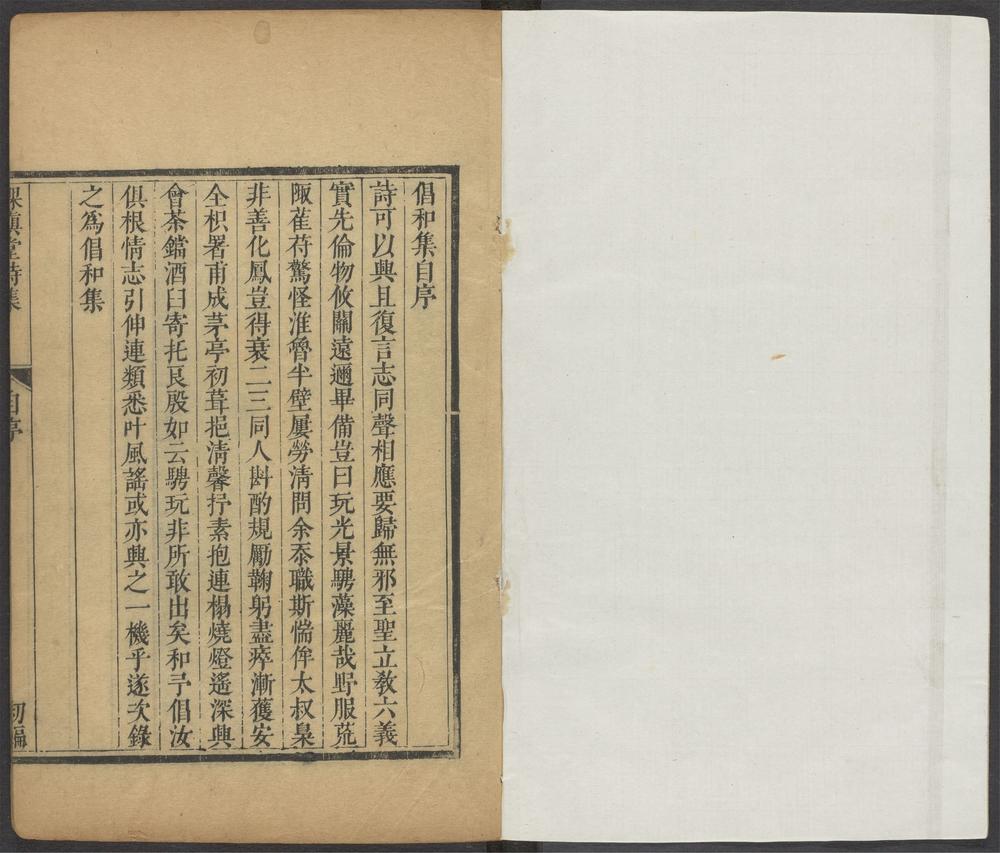 倡和集自序
詩可以興且復言志同聲相應要歸無邪至聖立教六義
實先倫物攸關遠邇畢備豈曰玩光景騁藻麗哉野服荒
陬萑苻驚怪淮魯半壁屢勞清問余忝職斯惴侔太叔梟
非善化鳳豈得衰二三同人斟酌規勵鞠躬盡瘁漸獲安
全枳署甫成茅亭初葺挹清馨抒素抱連榻燒燈遙深興
會茶鐺酒臼寄托良殷如云騁玩非所敢出矣和予倡汝
俱根情志引伸連類悉叶風謠或亦興之一機乎遂次錄
之為倡和集
堂詩集
自序
初編